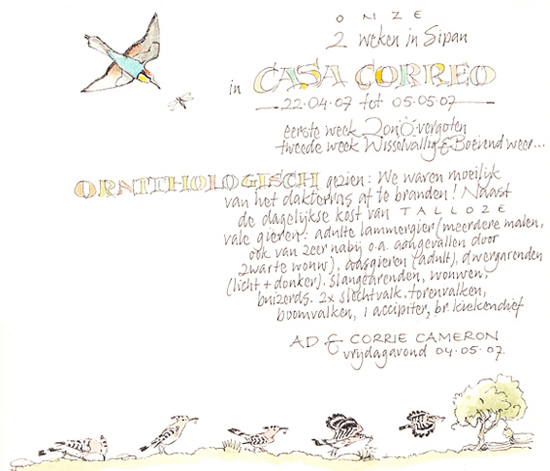 ONZE
2 weken in Sipan
in CASA CORREO
22.04.07 tot 05.05.07
eerste week Zon overgoten
tweede week Wisselvallig & Boeiend weer...
ORNITHOLOGISCH gezien: We waren moeilijk
van het dakterras af te branden! Naast
de dagelijkse kost van TALLOZE
vale gieren: adulte lammergier (meerdere malen,
ook van zeer nabij o.a. aangevallen door
zwarte wouw), aasgieren (adult), dwergarenden
(licht + donker), slangearenden, wouwen,
buizerds. 2x slechtvalk. torenvalken,
boomvalken, 1 accipiter, br. kiekendief
AD & CORRIE CAMERON
vrijdagavond 04.05.07.